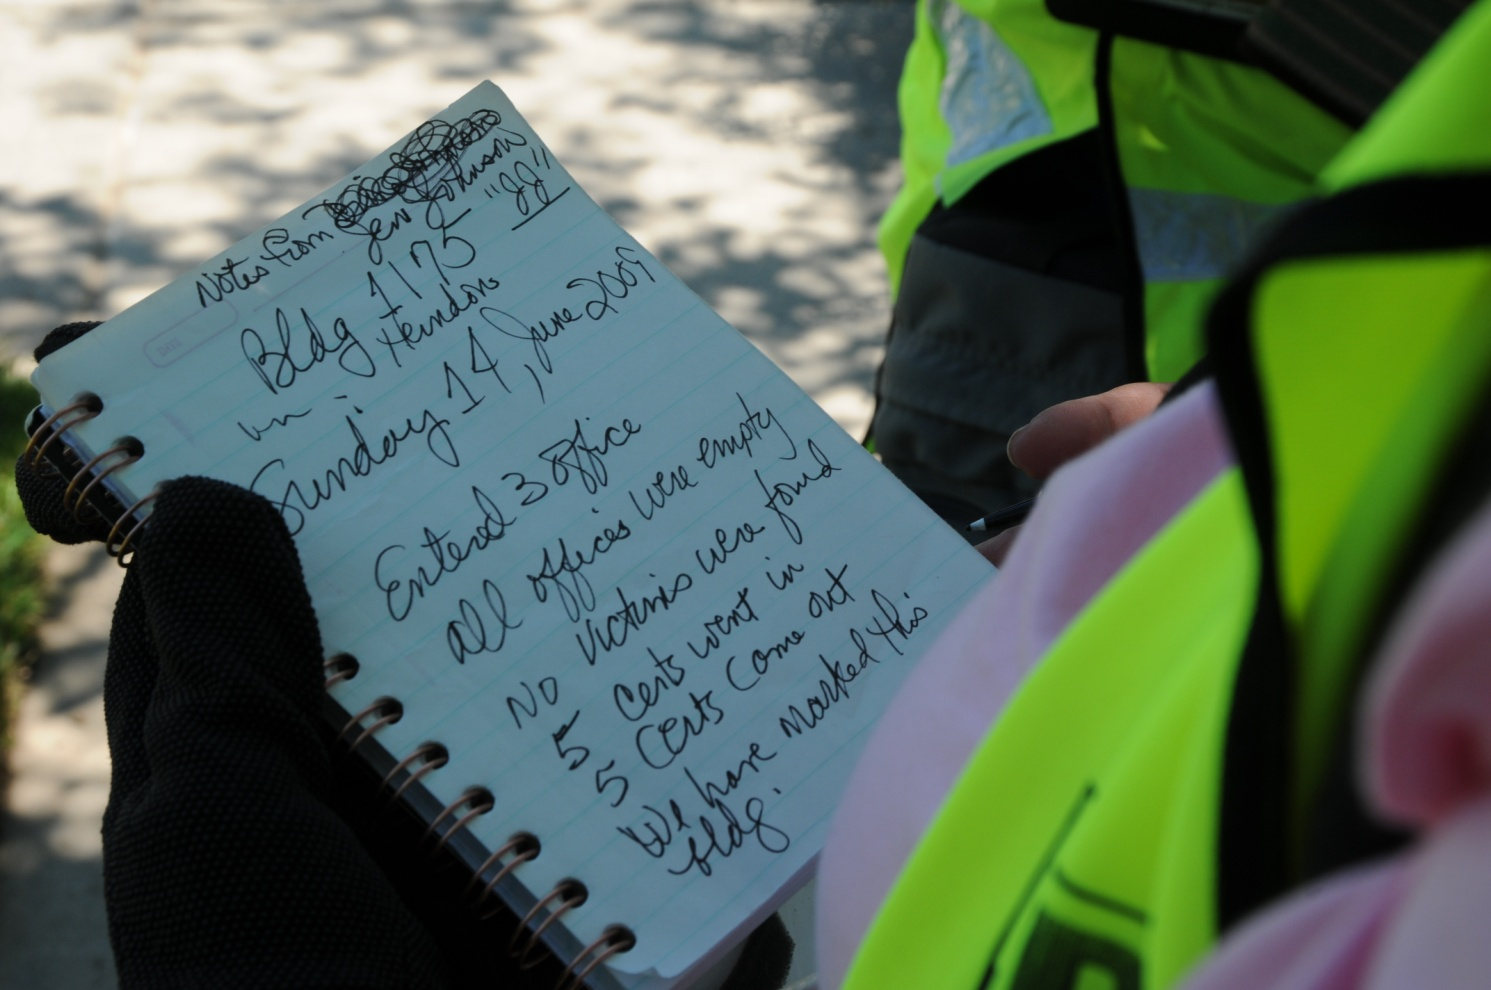 Notes from
Jen Johnson
"JJ"
Bldg 1175
in Herndons
Sunday 14, June 2009
Entered 3 office
all offices were empty
No victims were found
5 certs went in
5 certs come out
We have marked this
bldg.